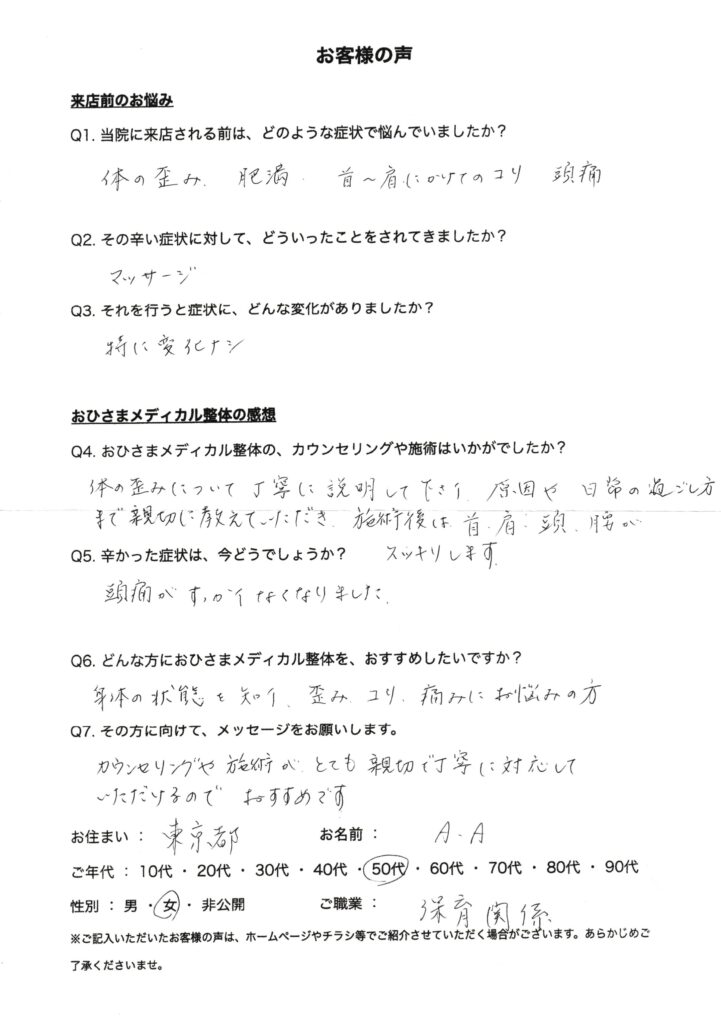 お客様の声
来店前のお悩み
Q1. 当院に来店される前は、どのような症状で悩んでいましたか？
体の歪み、 肥満、 首〜肩にかけてのコリ 頭痛
Q2. その辛い症状に対して、どういったことをされてきましたか？
マッサージ
Q3. それを行うと症状に、どんな変化がありましたか？
特に変化ナシ
おひさまメディカル整体の感想
Q4. おひさまメディカル整体の、カウンセリングや施術はいかがでしたか？
体の歪みについて丁寧に説明して下さり、原因や日常の過ごし方
まで親切に教えていただき、施術後は首、肩、頭、腰が
スッキリします。
Q5. 辛かった症状は、今どうでしょうか？
頭痛がすっかりなくなりました。
Q6. どんな方におひさまメディカル整体を、おすすめしたいですか？
身体の状態を知り、歪み、コリ、痛みにお悩みの方
Q7. その方に向けて、メッセージをお願いします。
カウンセリングや施術が、とても親切で丁寧に対応して
いただけるので おすすめです
お住まい： 東京都 お名前： A.A
ご年代：10代・20代・30代・40代・50代・60代・70代・80代・90代
性別：男・女・非公開 ご職業： 保育関係
※ご記入いただいたお客様の声は、ホームページやチラシ等でご紹介させていただく場合がございます。あらかじめご
了承くださいませ。